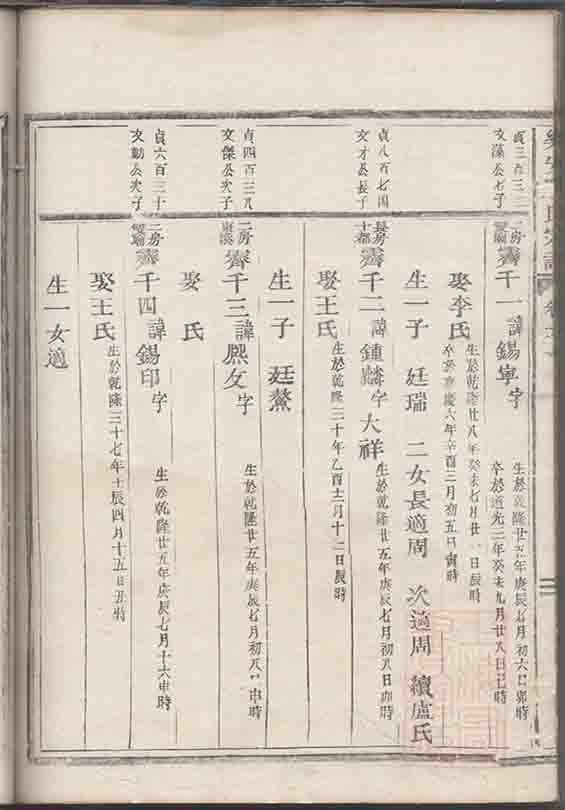 貞三百三三
文藻公七子
二房
霽千一諱錫寧字
生於乾隆廿五年庚辰七月初六日卯時
卒於道光三年癸未九月廿八日巳時
娶李氏
生於乾隆廿八年癸未七月廿一日辰時
卒於嘉慶六年辛酉三月初五日寅時
生一子 廷瑞 二女長適周 次適周 續盧氏
貞八百七四
文才公長子
長房
十都
霽千二諱鍾麟字大祥
生於乾隆廿五年庚辰七月初八日卯時
娶王氏
生於乾隆三十年乙酉十二月十二日辰時
生一子 廷鰲
貞四百三八
文傑公次子
二房
霽千三諱熈文字
生於乾隆廿五年庚辰七月初八日申時
娶 氏
貞六百三十
文勤公次子
二房
霽千四諱錫印字
生於乾隆廿五年庚辰七月十六申時
娶王氏
生於乾隆三十七年壬辰四月十五日丑時
生一女適